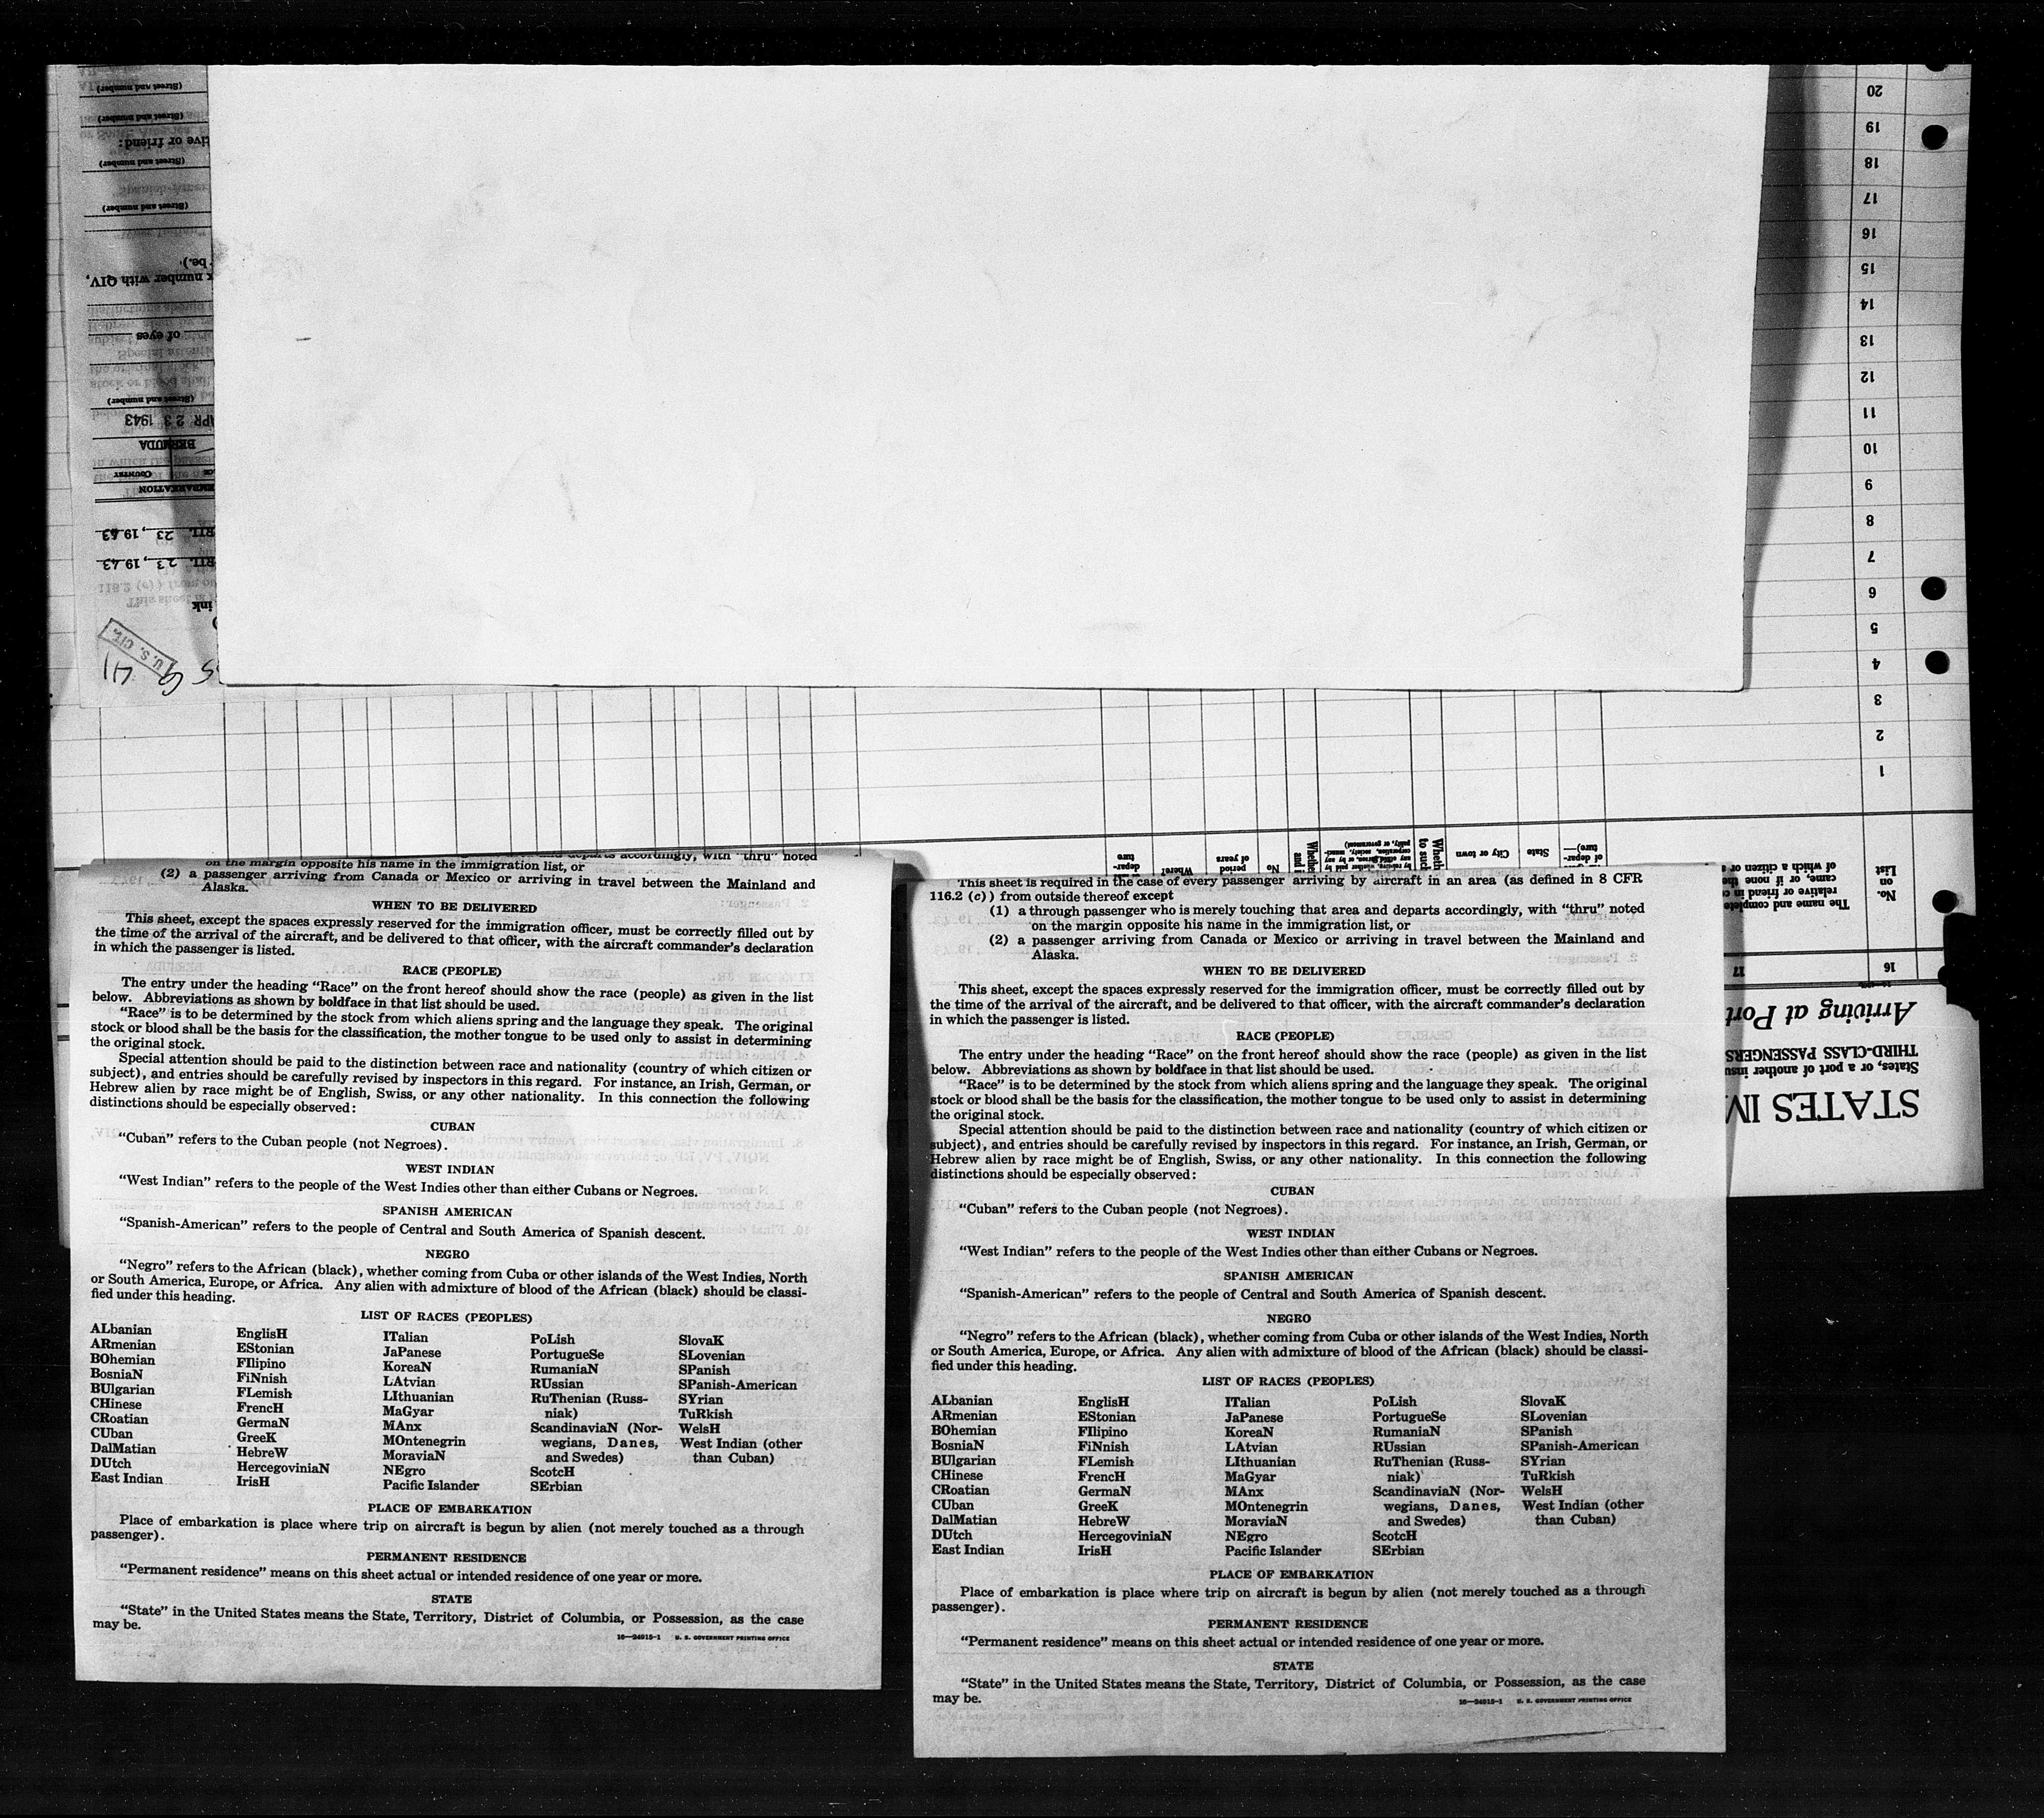 (Street and number)
(Street and number)
tive or friend:
(Street and number)
(Street and number)
be.)
number with QIV,
of eyes
(Street and number)
APR 23 1943
BERMUDA
COUNTRY
EMBARKATION
RIL 23, 1943
RIL 23, 1943
ink
U. S. CIT.
20
19
18
17
16
15
14
13
12
11
10
9
8
7
6
5
4
3
2
1
No.
on
List
The name and complete
relative or friend in c
came, or if none the
of which a citizen or
16
17
Arriving at Port
THIRD-CLASS PASSENGERS
States, or a port of another insu
STATES IM
City or town
State
Where?
period
of years
No
on the margin opposite his name in the immigration list, or
(2) a passenger arriving from Canada or Mexico or arriving in travel between the Mainland and
Alaska.
WHEN TO BE DELIVERED
This sheet, except the spaces expressly reserved for the immigration officer, must be correctly filled out by
the time of the arrival of the aircraft, and be delivered to that officer, with the aircraft commander's declaration
in which the passenger is listed.
RACE (PEOPLE)
The entry under the heading "Race" on the front hereof should show the race (people) as given in the list
below. Abbreviations as shown by boldface in that list should be used.
"Race" is to be determined by the stock from which aliens spring and the language they speak. The original
stock or blood shall be the basis for the classification, the mother tongue to be used only to assist in determining
the original stock.
Special attention should be paid to the distinction between race and nationality (country of which citizen or
subject), and entries should be carefully revised by inspectors in this regard. For instance, an Irish, German, or
Hebrew alien by race might be of English, Swiss, or any other nationality. In this connection the following
distinctions should be especially observed:
CUBAN
"Cuban" refers to the Cuban people (not Negroes).
WEST INDIAN
"West Indian" refers to the people of the West Indies other than either Cubans or Negroes.
SPANISH AMERICAN
"Spanish-American" refers to the people of Central and South America of Spanish descent.
NEGRO
"Negro" refers to the African (black), whether coming from Cuba or other islands of the West Indies, North
or South America, Europe, or Africa. Any alien with admixture of blood of the African (black) should be classi-
fied under this heading.
LIST OF RACES (PEOPLES)
ALbanian
ARmenian
BOhemian
BosniaN
BUlgarian
CHinese
CRoatian
CUban
DalMatian
DUtch
East Indian
EnglisH
EStonian
FIlipino
FiNnish
FLemish
FrencH
GermaN
GreeK
HebreW
HercegoviniaN
IrisH
ITalian
JaPanese
KoreaN
LAtvian
LIthuanian
MaGyar
MAnx
MOntenegrin
MoraviaN
NEgro
Pacific Islander
PoLish
PortugueSe
RumaniaN
RUssian
RuThenian (Russ-
niak)
ScandinaviaN (Nor-
wegians, Danes,
and Swedes)
ScotcH
SErbian
SlovaK
SLovenian
SPanish
SPanish-American
SYrian
TuRkish
WelsH
West Indian (other
than Cuban)
PLACE OF EMBARKATION
Place of embarkation is place where trip on aircraft is begun by alien (not merely touched as a through
passenger).
PERMANENT RESIDENCE
"Permanent residence" means on this sheet actual or intended residence of one year or more.
STATE
"State" in the United States means the State, Territory, District of Columbia, or Possession, as the case
may be.
16—24915-1 U. S. GOVERNMENT PRINTING OFFICE
This sheet is required in the case of every passenger arriving by aircraft in an area (as defined in 8 CFR
116.2 (c)) from outside thereof except
(1) a through passenger who is merely touching that area and departs accordingly, with "thru" noted
on the margin opposite his name in the immigration list, or
(2) a passenger arriving from Canada or Mexico or arriving in travel between the Mainland and
Alaska.
WHEN TO BE DELIVERED
This sheet, except the spaces expressly reserved for the immigration officer, must be correctly filled out by
the time of the arrival of the aircraft, and be delivered to that officer, with the aircraft commander's declaration
in which the passenger is listed.
RACE (PEOPLE)
The entry under the heading "Race" on the front hereof should show the race (people) as given in the list
below. Abbreviations as shown by boldface in that list should be used.
"Race" is to be determined by the stock from which aliens spring and the language they speak. The original
stock or blood shall be the basis for the classification, the mother tongue to be used only to assist in determining
the original stock.
Special attention should be paid to the distinction between race and nationality (country of which citizen or
subject), and entries should be carefully revised by inspectors in this regard. For instance, an Irish, German, or
Hebrew alien by race might be of English, Swiss, or any other nationality. In this connection the following
distinctions should be especially observed:
CUBAN
"Cuban" refers to the Cuban people (not Negroes).
WEST INDIAN
"West Indian" refers to the people of the West Indies other than either Cubans or Negroes.
SPANISH AMERICAN
"Spanish-American" refers to the people of Central and South America of Spanish descent.
NEGRO
"Negro" refers to the African (black), whether coming from Cuba or other islands of the West Indies, North
or South America, Europe, or Africa. Any alien with admixture of blood of the African (black) should be classi-
fied under this heading.
LIST OF RACES (PEOPLES)
ALbanian
ARmenian
BOhemian
BosniaN
BUlgarian
CHinese
CRoatian
CUban
DalMatian
DUtch
East Indian
EnglisH
EStonian
FIlipino
FiNnish
FLemish
FrencH
GermaN
GreeK
HebreW
HercegoviniaN
IrisH
ITalian
JaPanese
KoreaN
LAtvian
LIthuanian
MaGyar
MAnx
MOntenegrin
MoraviaN
NEgro
Pacific Islander
PoLish
PortugueSe
RumaniaN
RUssian
RuThenian (Russ-
niak)
ScandinaviaN (Nor-
wegians, Danes,
and Swedes)
ScotcH
SErbian
SlovaK
SLovenian
SPanish
SPanish-American
SYrian
TuRkish
WelsH
West Indian (other
than Cuban)
PLACE OF EMBARKATION
Place of embarkation is place where trip on aircraft is begun by alien (not merely touched as a through
passenger).
PERMANENT RESIDENCE
"Permanent residence" means on this sheet actual or intended residence of one year or more.
STATE
"State" in the United States means the State, Territory, District of Columbia, or Possession, as the case
may be.
16—24915-1 U. S. GOVERNMENT PRINTING OFFICE